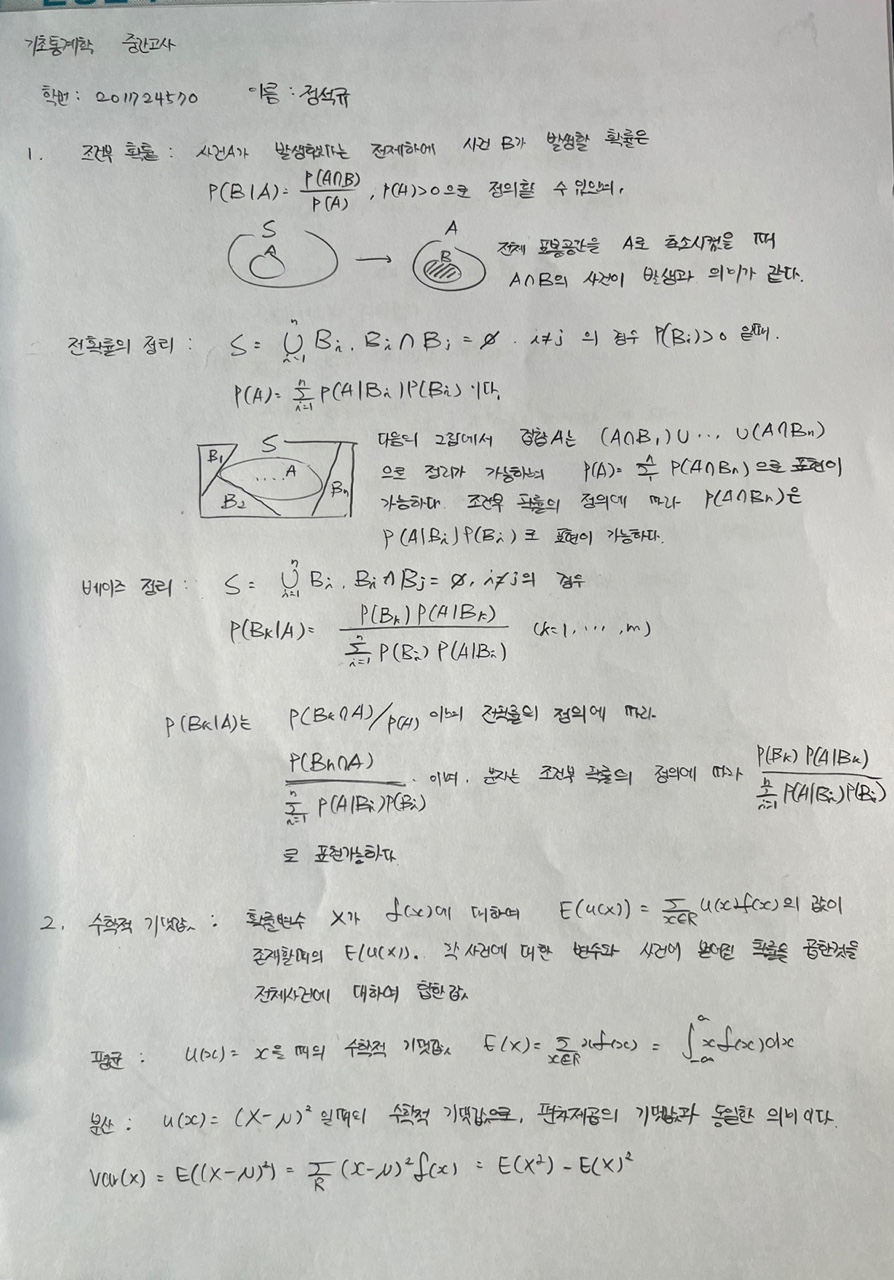 기초통계학 중간고사
학번: 201724570 이름: 정석규
1. 조건부 확률 : 사건A가 발생했다는 전제하에 사건 B가 발생할 확률은
P(B|A)= P(A∩B)/P(A), P(A)>0 으로 정의할 수 있으며,
S A → A B
전체 표본공간을 A로 축소시켰을 때
A∩B의 사건이 발생과 의미가 같다.
전확률의 정리 : S = ⋃_{i=1}^{n} Bi, Bi∩Bj = ∅. i≠j 의 경우 P(Bi)>0 일때.
P(A)= Σ_{i=1}^{n} P(A|Bi)P(Bi) 이다.
S B1 B2 .... A Bn
다음의 그림에서 집합A는 (A∩B1)∪ ... ∪(A∩Bn)
으로 정리가 가능하며 P(A)= Σ P(A∩Bn)으로 표현이
가능하다. 조건부 확률의 정의에 따라 P(A∩Bn)은
P(A|Bi)P(Bi)로 표현이 가능하다.
베이즈 정리 : S = ⋃_{i=1}^{n} Bi, Bi∩Bj = ∅, i≠j의 경우
P(Bk|A)= P(Bk)P(A|Bk) / Σ_{i=1}^{n} P(Bi)P(A|Bi) (k=1, ..., m)
P(Bk|A)는 P(Bk∩A)/P(A) 이며 전확률의 정의에 따라.
P(Bn∩A) / Σ_{i=1}^{n} P(A|Bi)P(Bi) 이며, 분자는 조건부 확률의 정의에 따라 P(Bk)P(A|Bk) / Σ_{i=1}^{n} P(A|Bi)P(Bi)
로 표현가능하다.
2. 수학적 기댓값 : 확률변수 X가 f(x)에 대하여 E(u(x)) = Σ_{x∈R} u(x)f(x)의 값이
존재할때의 E(u(x)). 각 사건에 대한 변수와 사건이 확률을 곱한것을
전체사건에 대하여 합한값
평균 : u(x)= x일 때의 수학적 기댓값 E(x)= Σ_{x∈R} xf(x) = ∫_{-a}^{a} xf(x)dx
분산 : u(x)= (X-μ)² 일때의 수학적 기댓값으로, 편차제곱의 기댓값과 동일한 의미이다.
Var(x) = E((X-μ)²) = Σ_R (x-μ)²f(x) = E(X²) - E(X)²